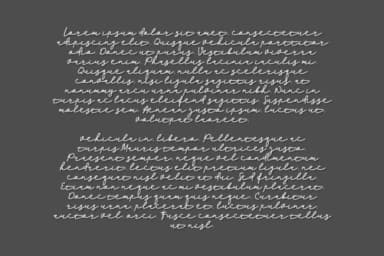 Lorem ipsum dolor sit amet, consectetuer
adipiscing elit. Quisque vehicula porttitor
odio. Donec et purus. Vestibulum viverra
varius enim. Phasellus lacinia iaculis mi.
Quisque aliquam nulla ac scelerisque
convallis, nisi ligula sagittis risus, at
nonummy arcu urna pulvinar nibh. Nunc in
turpis ac lacus eleifend sagittis. Suspendisse
molestie sem. Aenean justo ipsum, luctus ut
volutpat laoreet.
vehicula in, libero. Pellentesque ac
turpis Mauris tempor ultrices justo.
Praesent semper, neque vel condimentum
hendrerit, lectus elit pretium ligula, nec
consequat nisl velit at dui. Sed fringilla.
Etiam non neque ac mi vestibulum placerat.
Donec tempus quam quis neque. Curabitur
risus urna, placerat et, luctus pulvinar,
auctor vel, orci. Fusce consectetuer tellus
ut nisl